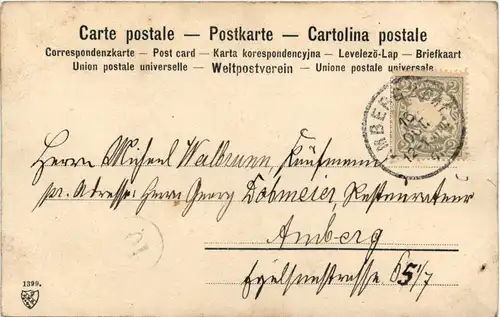 Carte postale — Postkarte — Cartolina postale
Correspondenzkarte — Post card — Karta korespondencyjna — Levelező-Lap — Briefkaart
Union postale universelle — Weltpostverein — Unione postale universale
2
AMBERG
Herrn Michael Kaufmann
pr. Adresse: Herrn Georg Dobmeier, Restaurateur
Amberg
1399.